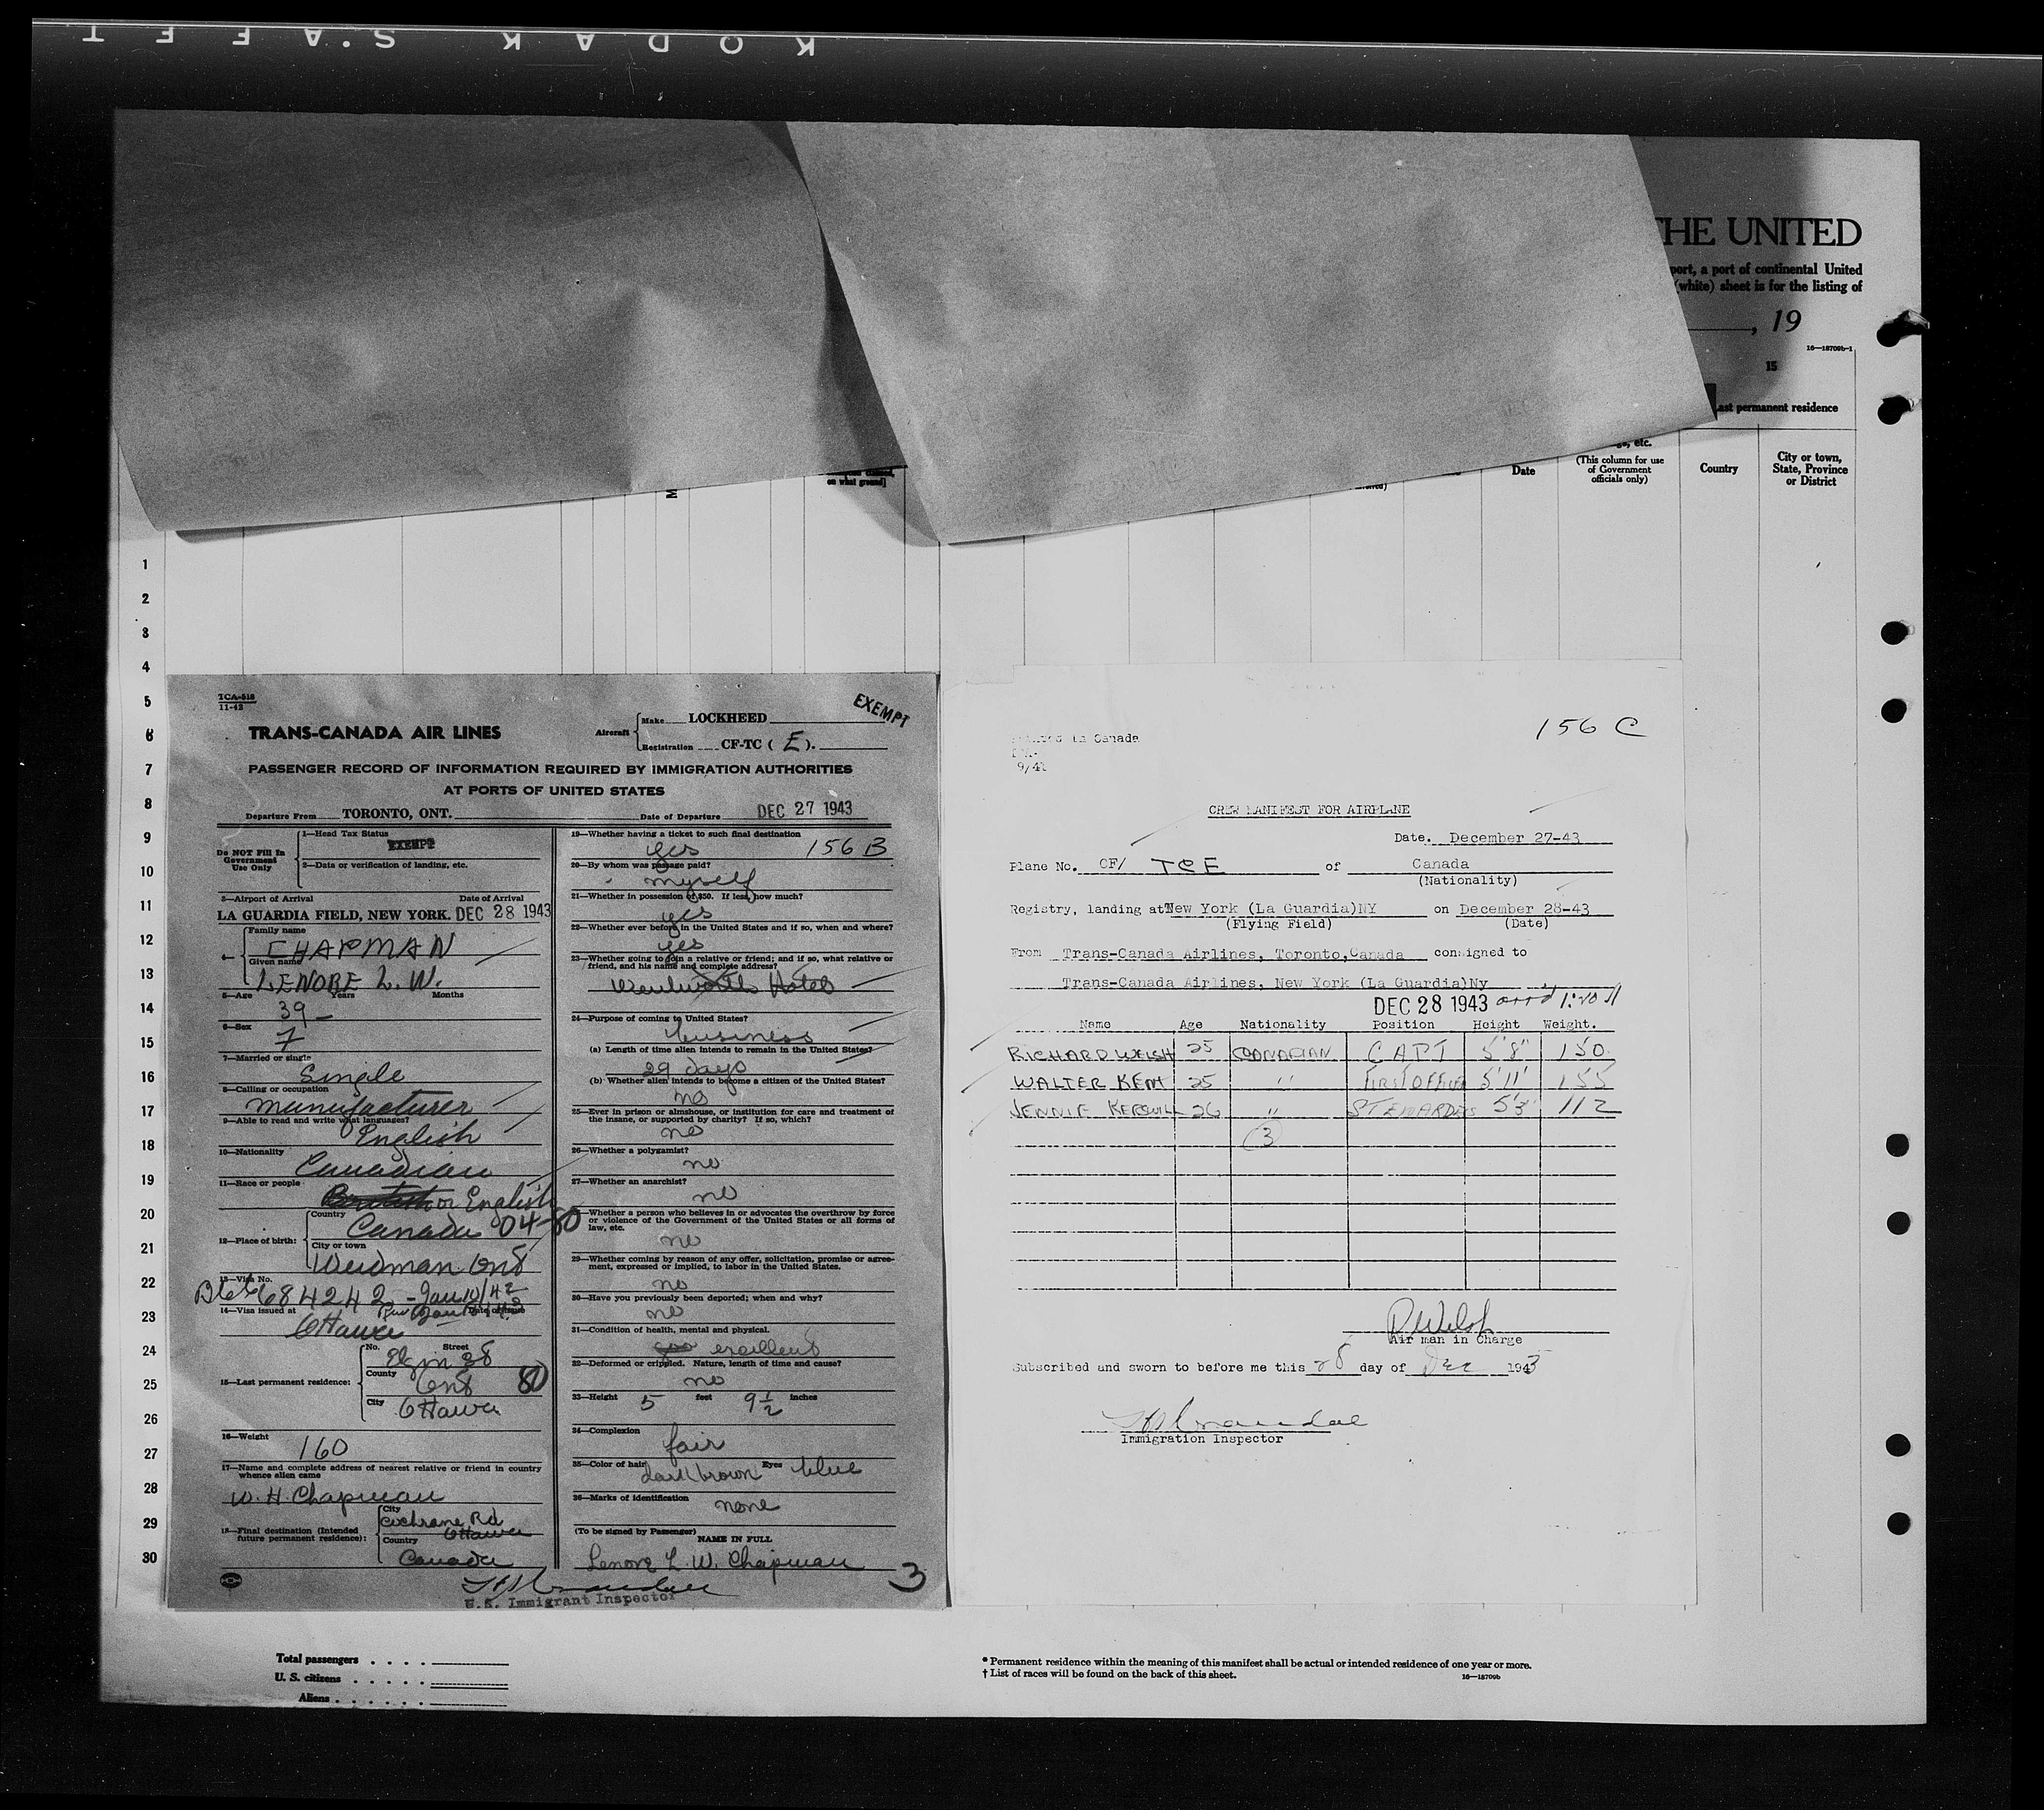 KODAK S.AFET
THE UNITED
port, a port of continental United
(white) sheet is for the listing of
, 19
16—18709b-1
15
Last permanent residence
etc.
on what ground]
Date
(This column for use of Government officials only)
Country
City or town, State, Province or District
1
2
3
4
5
6
7
8
9
10
11
12
13
14
15
16
17
18
19
20
21
22
23
24
25
26
27
28
29
30
TCA-518
11-43
EXEMPT
TRANS-CANADA AIR LINES
Aircraft
Make LOCKHEED
Registration CF-TC ( E ).
PASSENGER RECORD OF INFORMATION REQUIRED BY IMMIGRATION AUTHORITIES
AT PORTS OF UNITED STATES
Departure From TORONTO, ONT. Date of Departure DEC 27 1943
Do NOT Fill In Government Use Only
1—Head Tax Status
EXEMPT
2—Data or verification of landing, etc.
3—Airport of Arrival Date of Arrival
LA GUARDIA FIELD, NEW YORK. DEC 28 1943
4—
Family name
CHAPMAN
Given name
LENORE L. W.
5—Age Years Months
39 —
6—Sex
7
7—Married or single
Single
8—Calling or occupation
manufacturer
9—Able to read and write what languages?
English
10—Nationality
Canadian
11—Race or people
or English
12—Place of birth:
Country
Canada 04-80
City or town
Ont
13—Visa No.
684242 - Jan 10/42
14—Visa issued at
Ottawa
15—Last permanent residence:
No. Street
Elgin St
County
Ont 80
City
Ottawa
16—Weight
160
17—Name and complete address of nearest relative or friend in country whence alien came
W. H. Chapman
18—Final destination (Intended future permanent residence):
City
Cochrane Rd
Ottawa
Country
Canada
U.S. Immigrant Inspector
19—Whether having a ticket to such final destination
yes 156 B
20—By whom was passage paid?
myself
21—Whether in possession of $50. If less, how much?
yes
22—Whether ever before in the United States and if so, when and where?
yes
23—Whether going to join a relative or friend; and if so, what relative or
friend, and his name and complete address?
Wentworth Hotel
24—Purpose of coming to United States?
business
(a) Length of time alien intends to remain in the United States?
29 days
(b) Whether alien intends to become a citizen of the United States?
no
25—Ever in prison or almshouse, or institution for care and treatment of
the insane, or supported by charity? If so, which?
no
26—Whether a polygamist?
no
27—Whether an anarchist?
no
Whether a person who believes in or advocates the overthrow by force
or violence of the Government of the United States or all forms of
law, etc.
no
29—Whether coming by reason of any offer, solicitation, promise or agree-
ment, expressed or implied, to labor in the United States.
no
30—Have you previously been deported; when and why?
no
31—Condition of health, mental and physical.
excellent
32—Deformed or crippled. Nature, length of time and cause?
no
33—Height 5 feet 9 1/2 inches
34—Complexion
fair
35—Color of hair dark brown Eyes blue
36—Marks of identification
none
(To be signed by Passenger)
NAME IN FULL
Lenore L. W. Chapman
3
156 C
in Canada
CREW MANIFEST FOR AIRPLANE
Date. December 27-43
Plane No. CF/ TCE of Canada
(Nationality)
Registry, landing at New York (La Guardia)NY on December 28-43
(Flying Field) (Date)
From Trans-Canada Airlines, Toronto,Canada consigned to
Trans-Canada Airlines, New York (La Guardia)Ny
DEC 28 1943
Name Age Nationality Position Height Weight.
RICHARD WELSH 25 CANADIAN CAPT 5'8" 150
WALTER KENT 25 " FIRST OFFICER 5'11" 155
JENNIE KERSWILL 26 " STEWARDESS 5'3" 112
3
R Welsh
Air man in Charge
Subscribed and sworn to before me this 28 day of Dec 1943
Immigration Inspector
Total passengers . . . .
U. S. citizens . . . . .
Aliens . . . . . .
* Permanent residence within the meaning of this manifest shall be actual or intended residence of one year or more.
† List of races will be found on the back of this sheet.
16—18709b